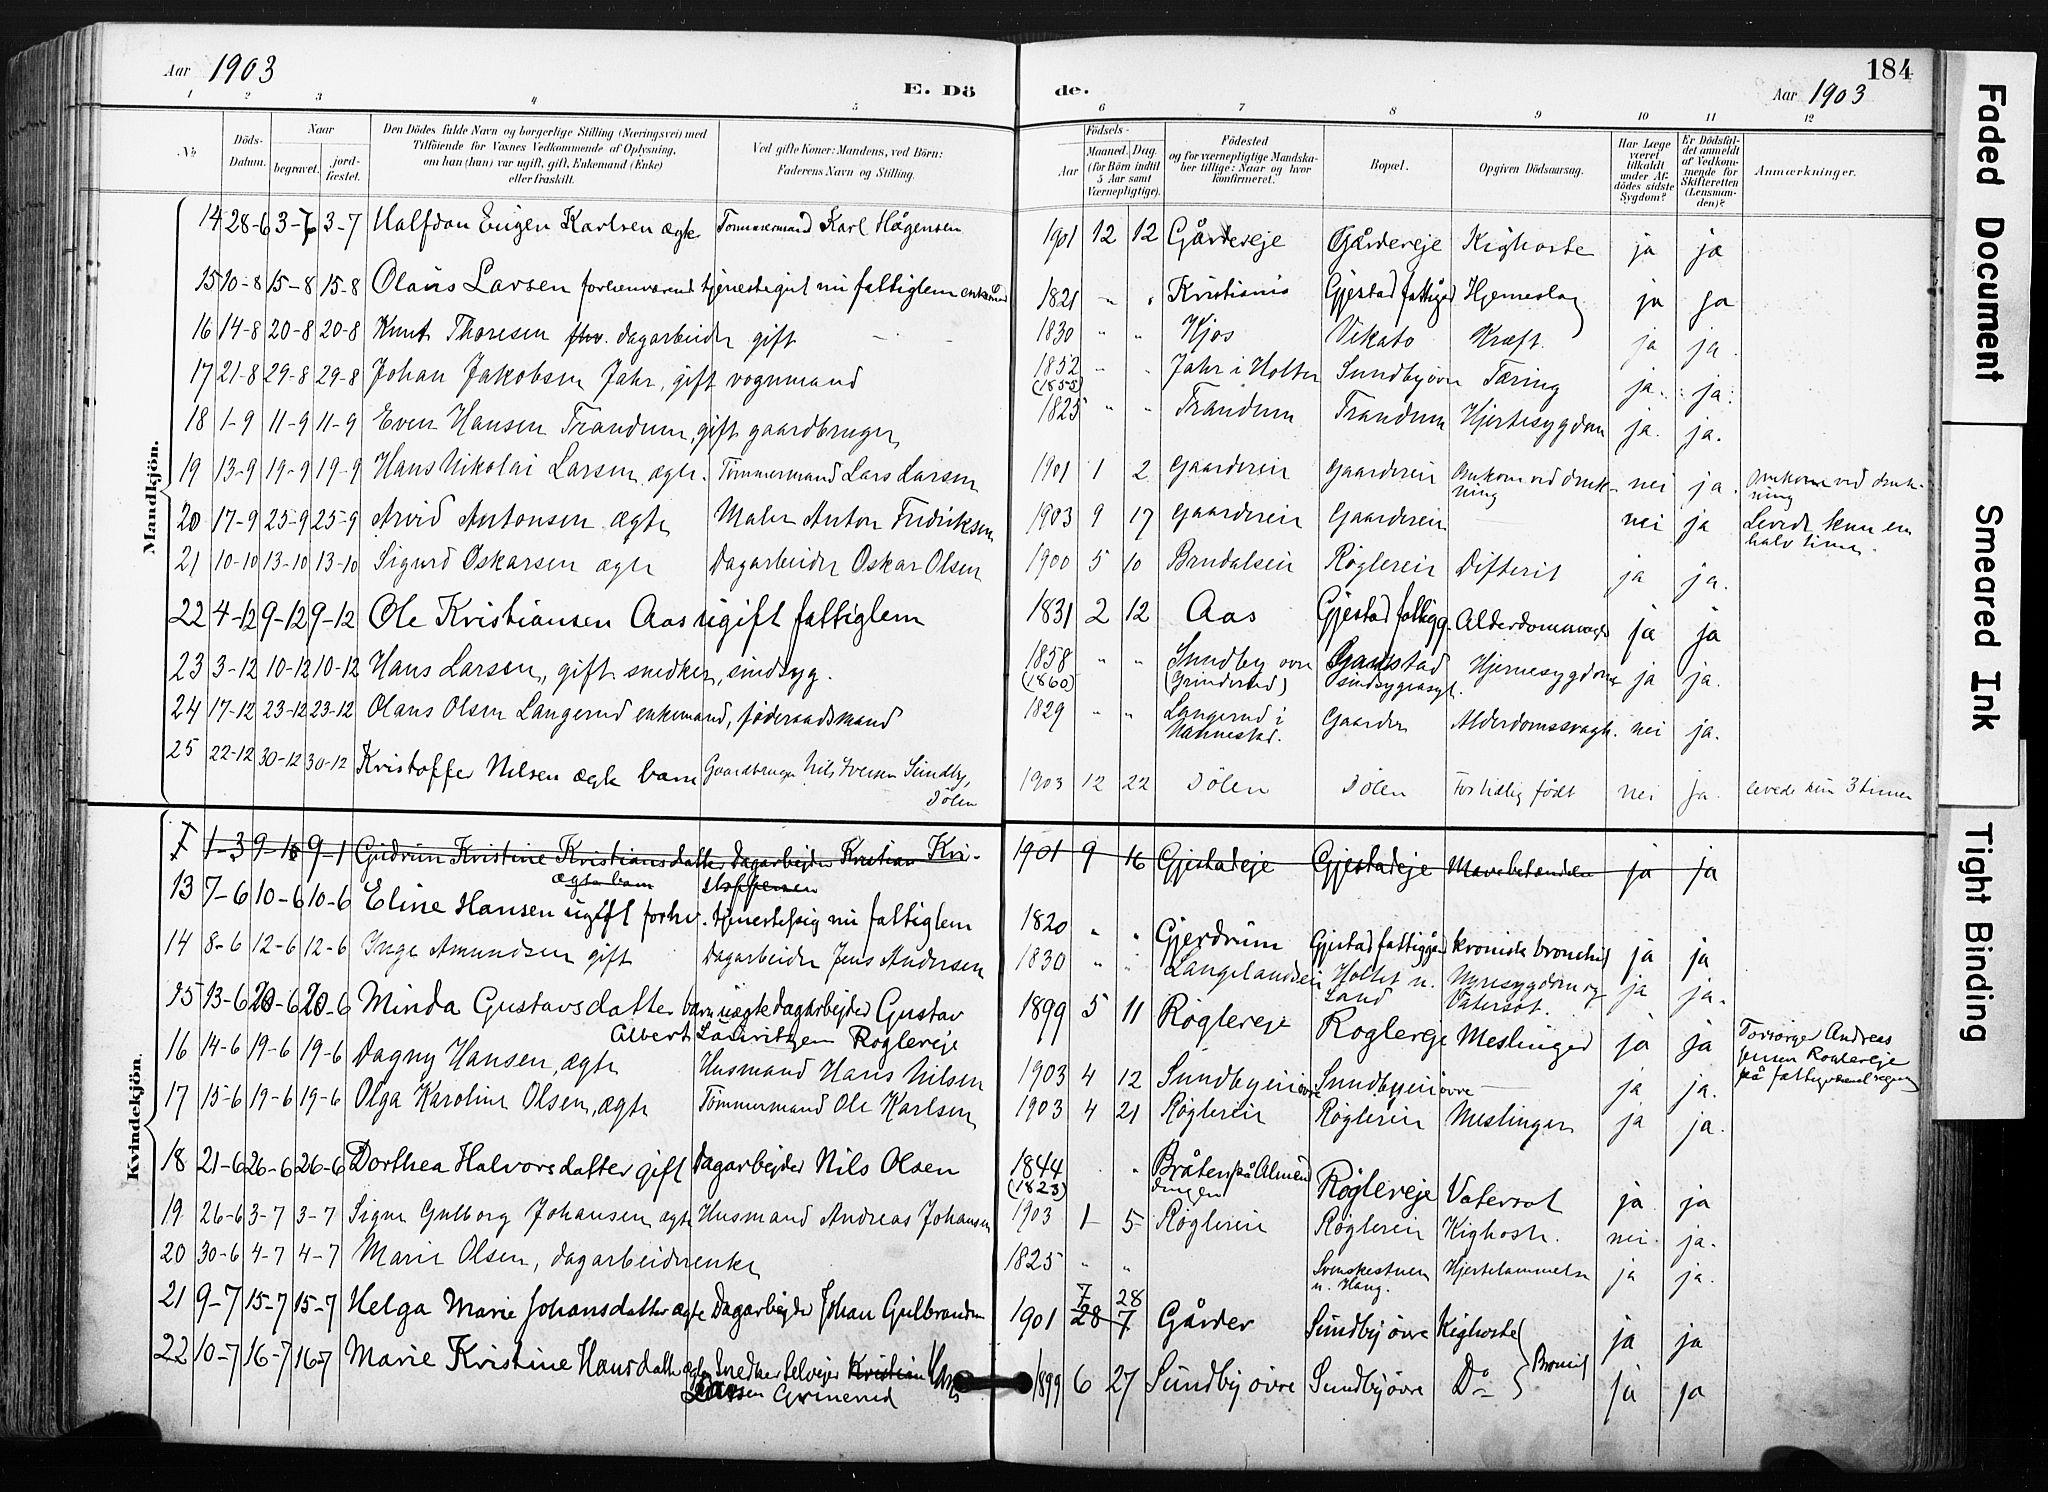 Aar 1903
E. Dö
de.
184
Aar 1903
1 2 3 4 5 6 7 8 9 10 11 12
No
Döds-Datum.
Naar
begravet.
jord-fæstet.
Den Dödes fulde Navn og borgerlige Stilling (Næringsvei) med
Tilföiende for Voxnes Vedkommende af Oplysning,
om han (hun) var ugift, gift, Enkemand (Enke)
eller fraskilt.
Ved gifte Koner: Mandens, ved Börn:
Faderens Navn og Stilling.
Födsels-
Aar
Maaned. Dag.
(for Börn indtil
5 Aar samt
Værnepligtige).
Födested
og for værnepligtige Mandska-
ber tillige: Naar og hvor
konfirmeret.
Bopæl.
Opgiven Dödsaarsag.
Har Læge
været
tilkaldt
under Af-
dödes sidste
Sygdom?
Er Dödsfal-
det anmeldt
af Vedkom-
mende for
Skifteretten
(Lensman-
den)?
Anmærkninger.
Mandkjön.
14 28-6 3-7 3-7 Halfdan Eugen Karlsen ægte Tømmermand Karl Hågensen 1901 12 12 Gårdereje Gårdereje Kighoste ja ja
15 10-8 15-8 15-8 Olaus Larsen forhenværend tjenestegut nu fattiglem enkemand 1821 " " Kristiania Gjestad fattiggd Hjerneslag ja ja
16 14-8 20-8 20-8 Knut Thoresen fhv. dagarbeider gift 1830 " " Hjos Vikato Kræft. ja ja.
17 21-8 29-8 29-8 Johan Jakobsen Jahr, gift vognmand 1852 (1855) " " Jahr i Holter Sundby øvre Tæring ja. ja.
18 1-9 11-9 11-9 Even Hansen Trandum, gift gaardbruger 1825 " " Trandum Trandum Hjertesygdom ja. ja.
19 13-9 19-9 19-9 Hans Nikolai Larsen ægte. Tømmermand Lars Larsen 1901 1 2 Gaardereie Gaardereie Omkom ved drukning nei ja. Omkom ved drukning
20 17-9 25-9 25-9 Arvid Antonsen ægte Maler Anton Fredriksen 1903 9 17 Gaardereie Gaardereie — nei ja Levede kun en halv time.
21 10-10 13-10 13-10 Sigurd Oskarsen ægte Dagarbeider Oskar Olsen 1900 5 10 Brudalseie Røglereie Difterit ja ja.
22 4-12 9-12 9-12 Ole Kristiansen Aas ugift fattiglem 1831 2 12 Aas Gjestad fattigg. Alderdomsvagh ja ja
23 3-12 10-12 10-12 Hans Larsen, gift snedker, sindsyg. 1858 (1860) " " Sundby øvre (Grinderud) Gaustad sindsygeasyl. Hjernesygdom ja ja.
24 17-12 23-12 23-12 Olaus Olsen Langerud enkemand, føderaadsmand 1829 " " Langerud i Nannestad. Gaarder Alderdomssvagh. nei ja.
25 22-12 30-12 30-12 Kristoffer Nilsen ægte barn Gaardbruger Nils Iversen Sundby, Dølen 1903 12 22 Dølen Dølen For tidlig født nei ja. levede kun 3 timer
Kvindekjön.
1 1-3 9-1 9-1 Gudrun Kristine Kristiansdatter ægte barn dagarbejder Kristian Kristoffersen 1901 9 16 Gjestadeje Gjestadeje Mavebetændelse ja ja
13 7-6 10-6 10-6 Eline Hansen ugift forhv. tjenestepig nu fattiglem 1820 " " Gjerdrum Gjestad fattiggård kronisk bronchit ja ja
14 8-6 12-6 12-6 Inge Amundsen gift Dagarbeider Jens Andersen 1830 " " Langelandseie Holtet u. Land Nyresygdom og Vatersot. ja ja.
15 13-6 20-6 20-6 Minda Gustavsdatter barn uægte dagarbejder Gustav Albert Lauritzen Røglereje 1899 5 11 Røglereje Røglereje Meslinger ja ja Forsørger Andreas Jensen Røglereje på fattigvæsenets regning
16 14-6 19-6 19-6 Dagny Hansen, ægte Husmand Hans Nilsen 1903 4 12 Sundbyeie øvre Sundbyeie øvre — ja ja.
17 15-6 19-6 19-6 Olga Karoline Olsen, ægte Tømmermand Ole Karlsen 1903 4 21 Røglereie Røglereie Meslinger ja ja.
18 21-6 26-6 26-6 Dorthea Halvorsdatter gift Dagarbejder Nils Olsen 1844 (1823) " Bråten på Almendingen Røglereje Vatersot ja ja
19 26-6 3-7 3-7 Signe Gulborg Johansen ægte Husmand Andreas Johansen 1903 1 5 Røglereie Røglereie Kighoste. nei. ja.
20 30-6 4-7 4-7 Marie Olsen, dagarbeiderenke 1825 " " Svenskestuen u. Haug. Hjertelammelse ja ja.
21 9-7 15-7 15-7 Helga Marie Johansdatter ægte Dagarbejder Johan Gulbrandsen 1901 28 7 7 28 Gårder Sundby øvre Kighoste ja ja
22 10-7 16-7 16-7 Marie Kristine Hansdatter ægte Snedker Selvejer Kristian Hans Larsen Grinerud 1899 6 27 Sundby øvre Sundby øvre Do Bronkit ja ja
Faded Document
Smeared Ink
Tight Binding